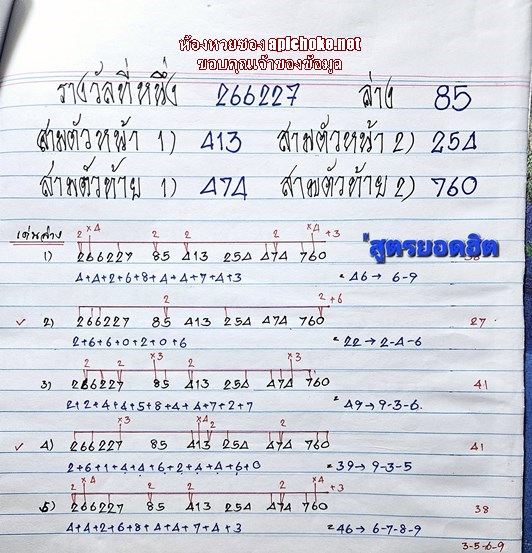 ห้องหวยของ apichoke.net
ขอบคุณเจ้าของข้อมูล
รางวัลที่หนึ่ง 266227 ล่าง 85
สามตัวหน้า 1) 413 สามตัวหน้า 2) 254
สามตัวท้าย 1) 474 สามตัวท้าย 2) 760
เด่นล่าง
2 x4 2 2 2 x4 +3
สูตรยอดฮิต
1) 266227 85 413 254 474 760 38
4+4+2+6+8+4+4+7+4+3 = 46 → 6-9
2 2 +6
✓ 2) 266227 85 413 254 474 760 27
2+6+6+0+2+0+6 = 22 → 2-4-6
2 2 x3 2 x3
3) 266227 85 413 254 474 760 41
2+2+4+4+5+8+4+4+7+2+7 = 49 → 9-3-6
x3 x4 2 2
✓ 4) 266227 85 413 254 474 760 41
2+6+1+4+4+6+2+4+4+6+0 = 39 → 9-3-5
2 x4 2 2 2 x4 +3
5) 266227 85 413 254 474 760 38
4+4+2+6+8+4+4+7+4+3 = 46 → 6-7-8-9
3-5-6-9